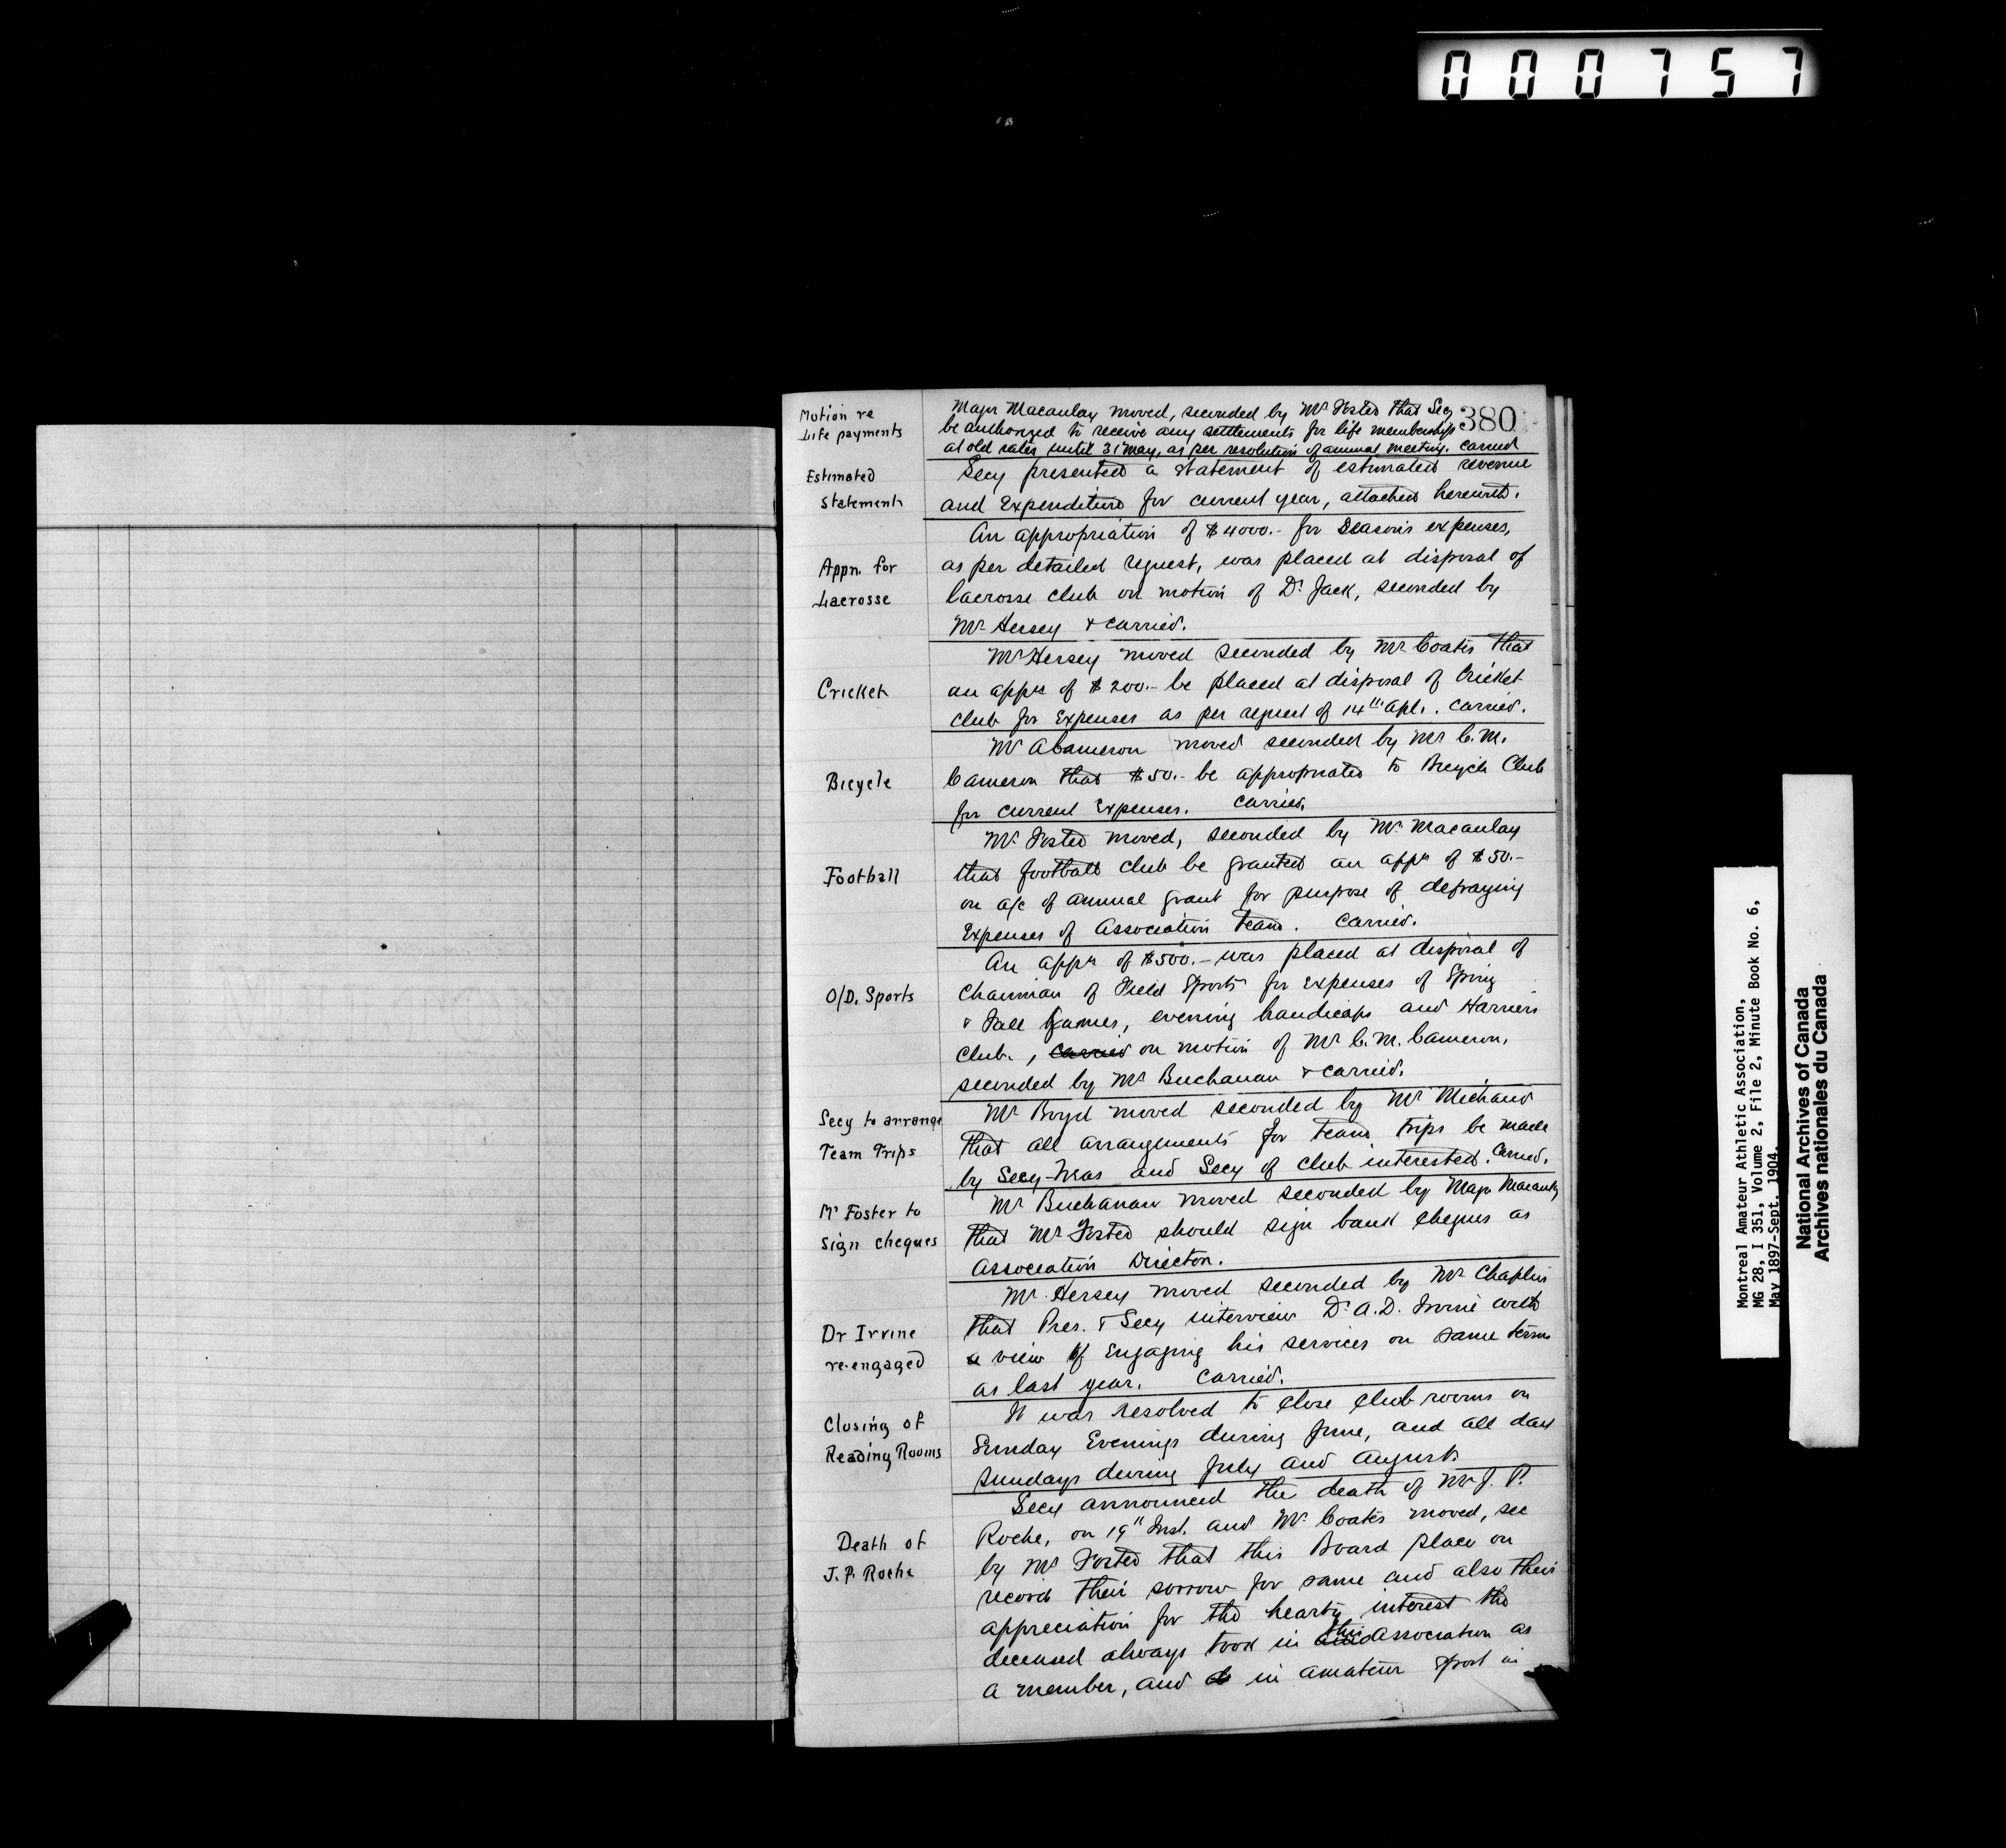 000757
380
Motion re
Life payments
Major Macaulay moved, seconded by Mr Foster that Secy
be authorized to receive any settlements for life memberships
at old rates until 31 May, as per resolution of annual meeting. Carried
Estimated
Statement
Secy presented a statement of estimated revenue
and Expenditure for current year, attached herewith.
Appn. for
Lacrosse
An appropriation of $4000.- for Season's expenses,
as per detailed request, was placed at disposal of
Lacrosse Club on motion of Dr Jack, seconded by
Mr Hersey & carried.
Cricket
Mr Hersey moved seconded by Mr Coates that
an appn of $200.- be placed at disposal of Cricket
Club for Expenses as per request of 14th Apl. Carried.
Bicycle
Mr A Cameron moved seconded by Mr C.M.
Cameron that $50.- be appropriated to Bicycle Club
for current Expenses. Carried.
Football
Mr Foster moved, seconded by Mr Macaulay
that football club be granted an appn of $50.-
on a/c of annual grant for purpose of defraying
Expenses of Association Team. Carried.
O/D. Sports
An appn of $500.- was placed at disposal of
Chairman of Field Sports for expenses of Spring
& Fall Games, evening handicaps and Harriers
Club., carried on motion of Mr C.M. Cameron,
seconded by Mr Buchanan & carried.
Secy to arrange
Team Trips
Mr Boyd moved seconded by Mr Michaud
that all arrangements for team trips be made
by Secy-Treas and Secy of Club interested. Carried.
Mr Foster to
sign cheques
Mr Buchanan moved seconded by Major Macaulay
that Mr Foster should sign bank cheques as
Association Director.
Dr Irvine
re-engaged
Mr Hersey moved seconded by Mr Chaplin
that Pres. & Secy interview Dr A.D. Irvine with
a view of Engaging his services on same terms
as last year. Carried.
Closing of
Reading Rooms
It was resolved to close Club rooms on
Sunday Evenings during June, and all day
Sundays during July and August.
Death of
J.P. Roche
Secy announced the death of Mr J. P.
Roche, on 19th Inst. and Mr Coates moved, sec
by Mr Foster that this Board place on
record their sorrow for same and also their
appreciation for the hearty interest the
deceased always took in this Association as
a member, and in amateur sport in
Montreal Amateur Athletic Association,
MG 28, I 351, Volume 2, File 2, Minute Book No. 6,
May 1897-Sept. 1904.
National Archives of Canada
Archives nationales du Canada